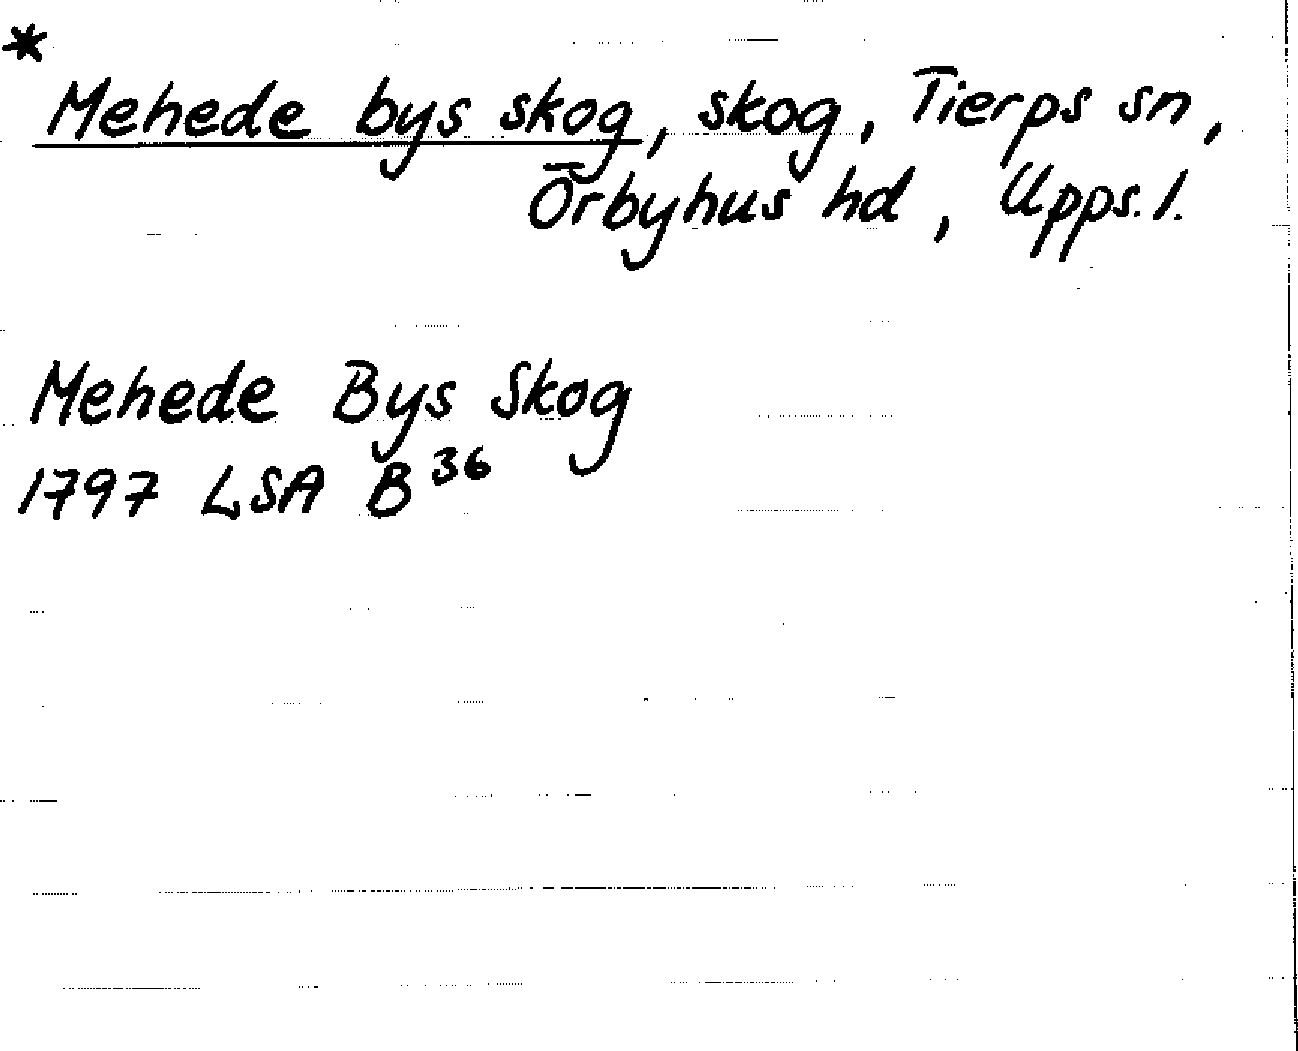 *
Mehede bys skog, skog, Tierps sn,
Örbyhus hd, Upps. l.
Mehede Bys Skog
1797 LSA B 36